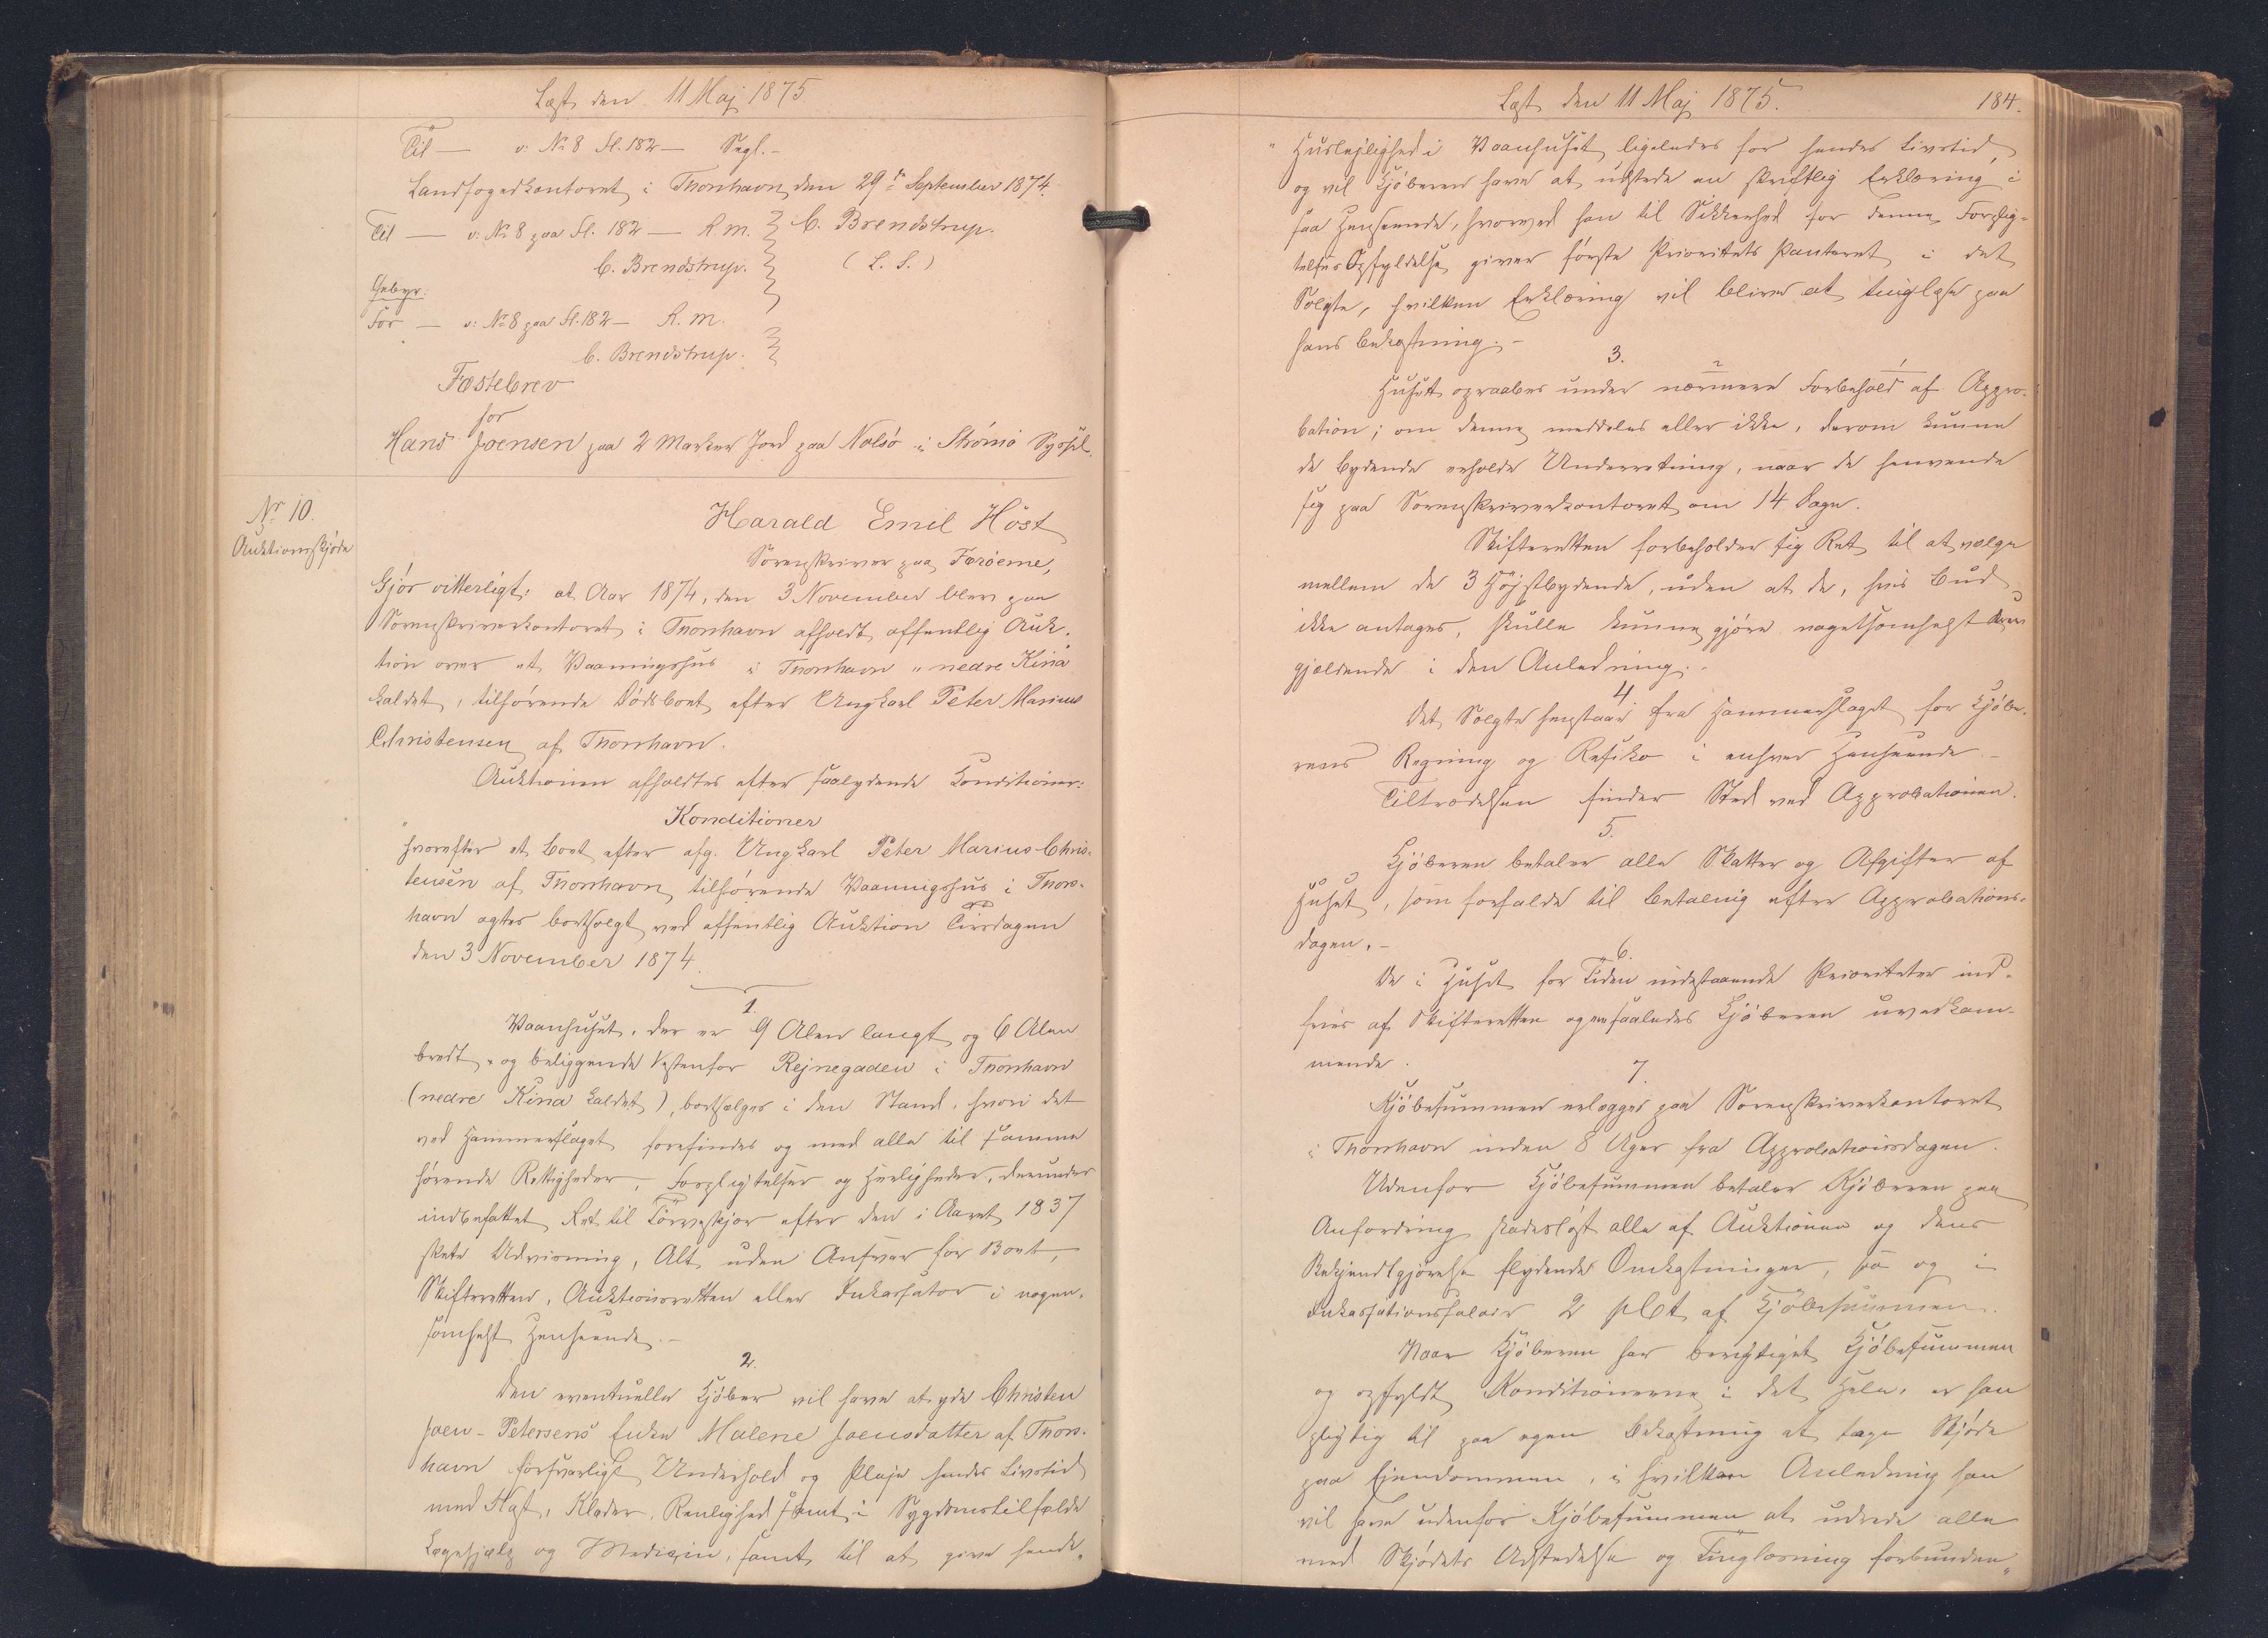 Læst den 11 Maj 1875
Til — v: No 8 Fl. 182 — Segl. -
Landfogedkontoret i Thorshavn, den 29de September 1874.
Til — v: No 8 paa Fl. 182 — R. M. C. Brendstrup.
C. Brendstrup. (L. S.)
Gebyr:
For — v: No 8 paa Fl. 182 — R. M.
C. Brendstrup.
Fæstebrev
for
Hans Joensen paa 2 Marker Jord paa Nolsø i Strømø Syssel.
Nr 10.
Auktionsskjøde
Harald Emil Höst
Sorenskriver paa Færøerne,
Gjör vitterligt: at Aar 1874, den 3 November blev paa
Sorenskriverkontoret i Thorshavn afholdt offentlig Auk-
tion over et Vaaningshus i Thorshavn "nedre Kina"
kaldet, tilhørende Dödsboet efter Ungkarl Peter Marius
Christensen af Thorshavn.
Auktionen afholdtes efter saalydende Konditioner:
Konditioner
"hvorefter et Boet efter afg. Ungkarl Peter Marius Chris-
tensen af Thorshavn tilhørende Vaaningshus i Thors-
havn agtes bortsolgt ved offentlig Auktion Tirsdagen
den 3 November 1874.
1.
Vaanhuset, der er 9 Alen langt og 6 Alen
bredt, og beliggende Vestenfor Rejnegaden i Thorshavn
(nedre Kina kaldet), bortsælges i den Stand, hvori det
ved Hammerslaget forefindes og med alle til samme
hørende Rettigheder, Forpligtelser og Herligheder, derunder
indbefattet Ret til Törveskjær efter den i Aaret 1837
skete Udvisning, Alt uden Ansvar for Boet,
Skifteretten, Auktionsretten eller Inkassator i nogen-
somhelst Henseende. -
2.
Den eventuelle Kjöber vil have at yde Christen
Joen-Petersens Enke Malene Joensdatter af Thors-
havn forsvarligt Underhold og Pleje hendes Livstid
med Kost, Klæder, Renlighed samt i Sygdomstilfælde
Lægehjælp og Medicin, samt til at give hende"
Læst den 11 Maj 1875.
184.
"Huslejlighed i Vaanhuset ligeledes for hendes Livstid,
og vil Kjöberen have at udstede en skriftlig Erklæring i
saa Henseende, hvorved han til Sikkerhed for denne Forplig-
telses Opfyldelse giver første Prioritets Panteret i det
Solgte, hvilken Erklæring vil blive at tinglæse paa
hans Bekostning. -
3.
Huset opraabes under nærmere Forbehold af Appro-
bation; om denne meddeles eller ikke, derom kunne
de bydende erholde Underretning, naar de henvende
sig paa Sorenskriverkontoret om 14 Dage.
Skifteretten forbeholder sig Ret til at vælge
mellem de 3 Højstbydende, uden at de, hvis Bud
ikke antages, skulle kunne gjöre nogetsomhelst Krav
gjældende i den Anledning. -
4
Det Solgte henstaar fra Hammerslaget for Kjöbe-
rens Regning og Risiko i enhver Henseende. -
Tiltrædelsen finder Sted ved Approbationen.
5.
Kjöberen betaler alle Skatter og Afgifter af
Huset, som forfalde til Betaling efter Approbations-
dagen. -
6.
De i Huset for Tiden indestaaende Prioriteter ind-
fries af Skifteretten og ere saaledes Kjöberen uvedkom-
mende.
7.
Kjöbesummen erlægges paa Sorenskriverkontoret
i Thorshavn inden 8 Uger fra Approbationsdagen.
Udenfor Kjöbesummen betaler Kjöberen paa
Anfordring skadeslöst alle af Auktionen og dens
Bekjendtgjørelse flydende Omkostninger, saa og i
Inkassationssalair 2 pCt af Kjöbesummen.
Naar Kjöberen har berigtiget Kjöbesummen
og opfyldt Konditionerne i det Hele, er han
pligtig til paa egen Bekostning at tage Skjøde
paa Ejendommen, i hvilken Anledning han
vil have udenfor Kjöbesummen at udrede alle
med Skjødets Udstedelse og Tinglæsning forbunden"